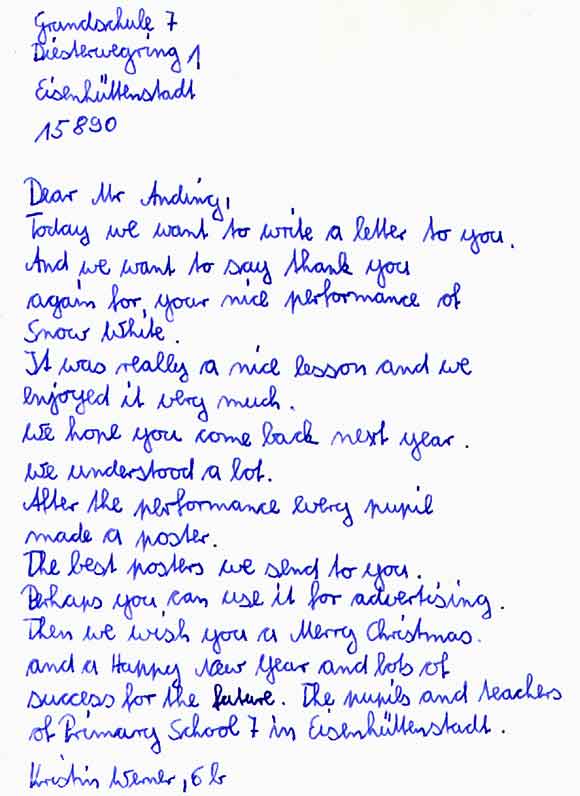 Grundschule 7
Diesterwegring 1
Eisenhüttenstadt
15890
Dear Mr Anding,
Today we want to write a letter to you.
And we want to say thank you
again for your nice performance of
Snow White.
It was really a nice lesson and we
enjoyed it very much.
We hope you come back next year.
We understood a lot.
After the performance every pupil
made a poster.
The best posters we send to you.
Perhaps you can use it for advertising.
Then we wish you a Merry Christmas.
and a Happy New Year and lots of
success for the future. The pupils and teachers
of Primary School 7 in Eisenhüttenstadt.
Kristin Werner, 6b